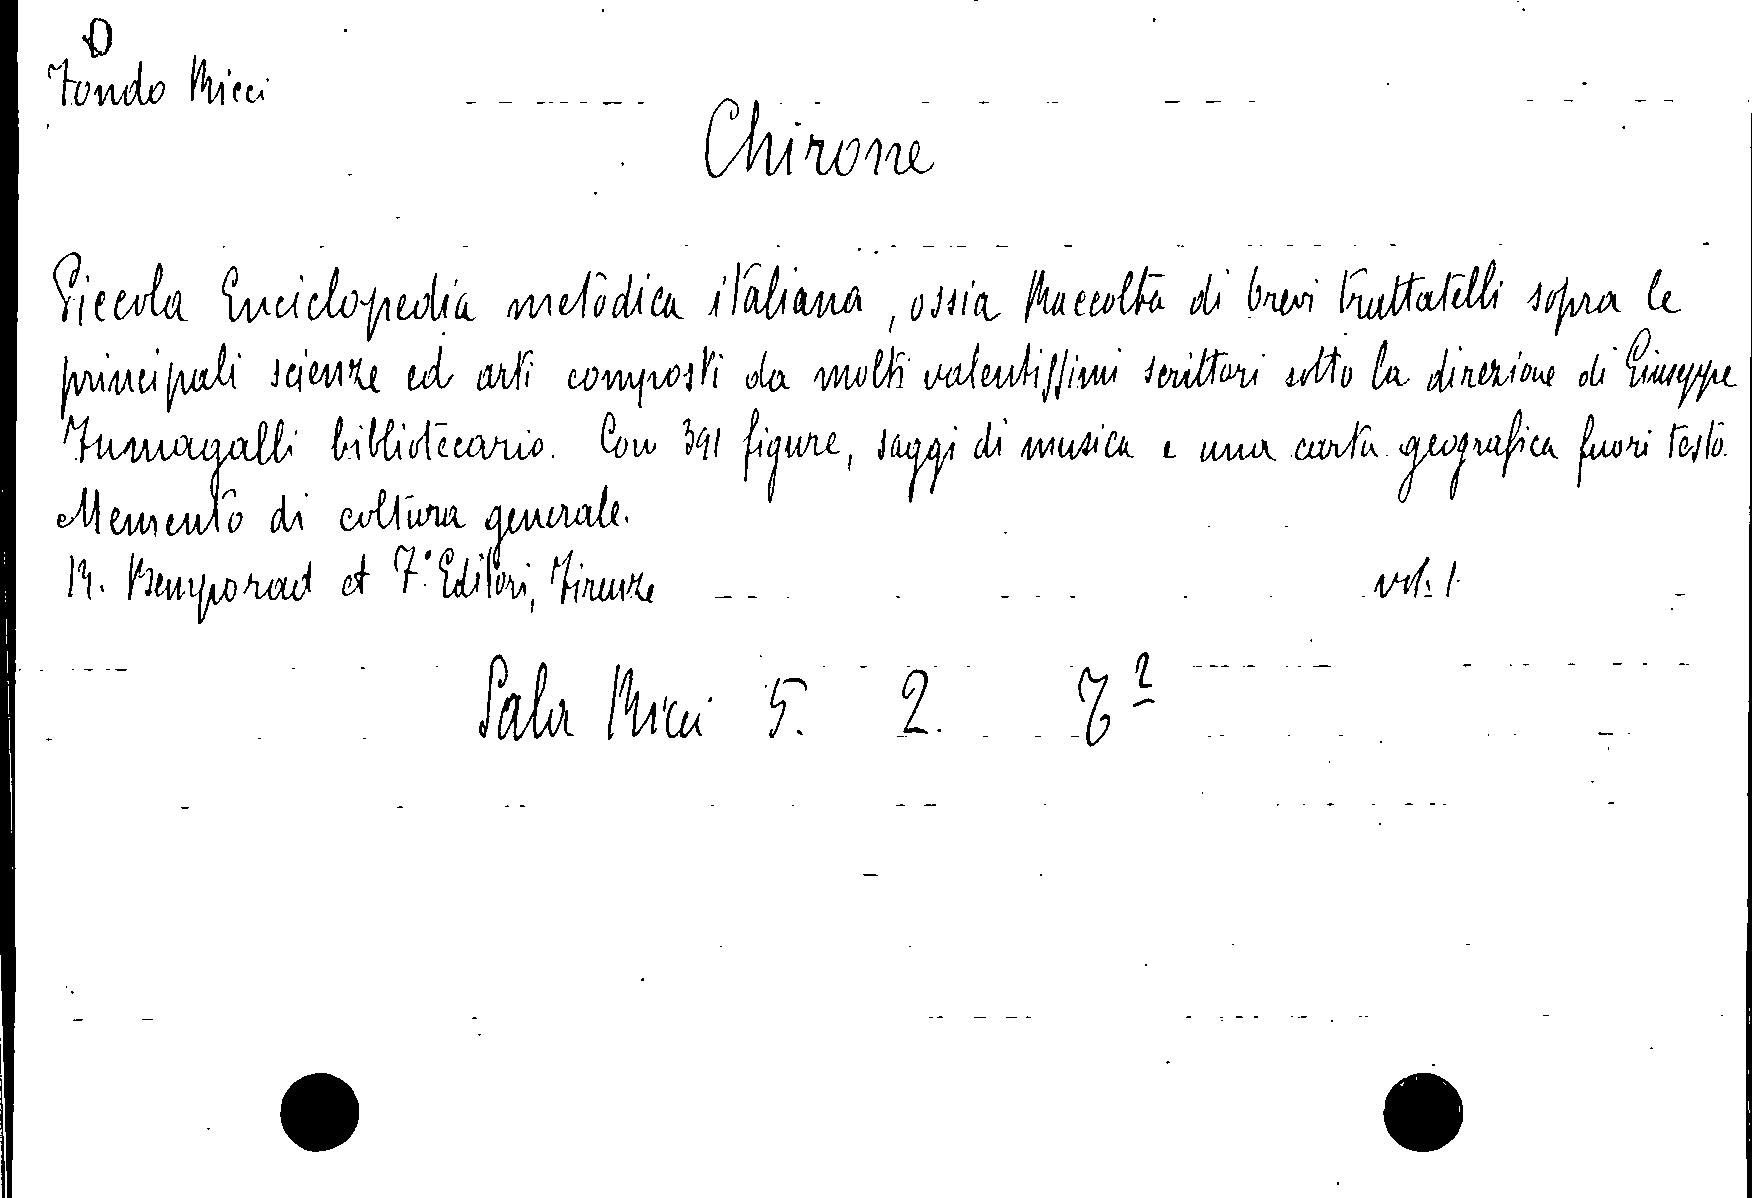 D
Fondo Ricci
Chirone
Piccola Enciclopedia metodica italiana, ossia Raccolta di brevi trattatelli sopra le
principali scienze ed arti composti da molti valentissimi scrittori sotto la direzione di Giuseppe
Fumagalli bibliotecario. Con 391 figure, saggi di musica e una carta geografica fuori testo.
Memento di coltura generale.
R. Bemporad et F.° Editori, Firenze vol. 1.
Sala Ricci 5. 2. 2